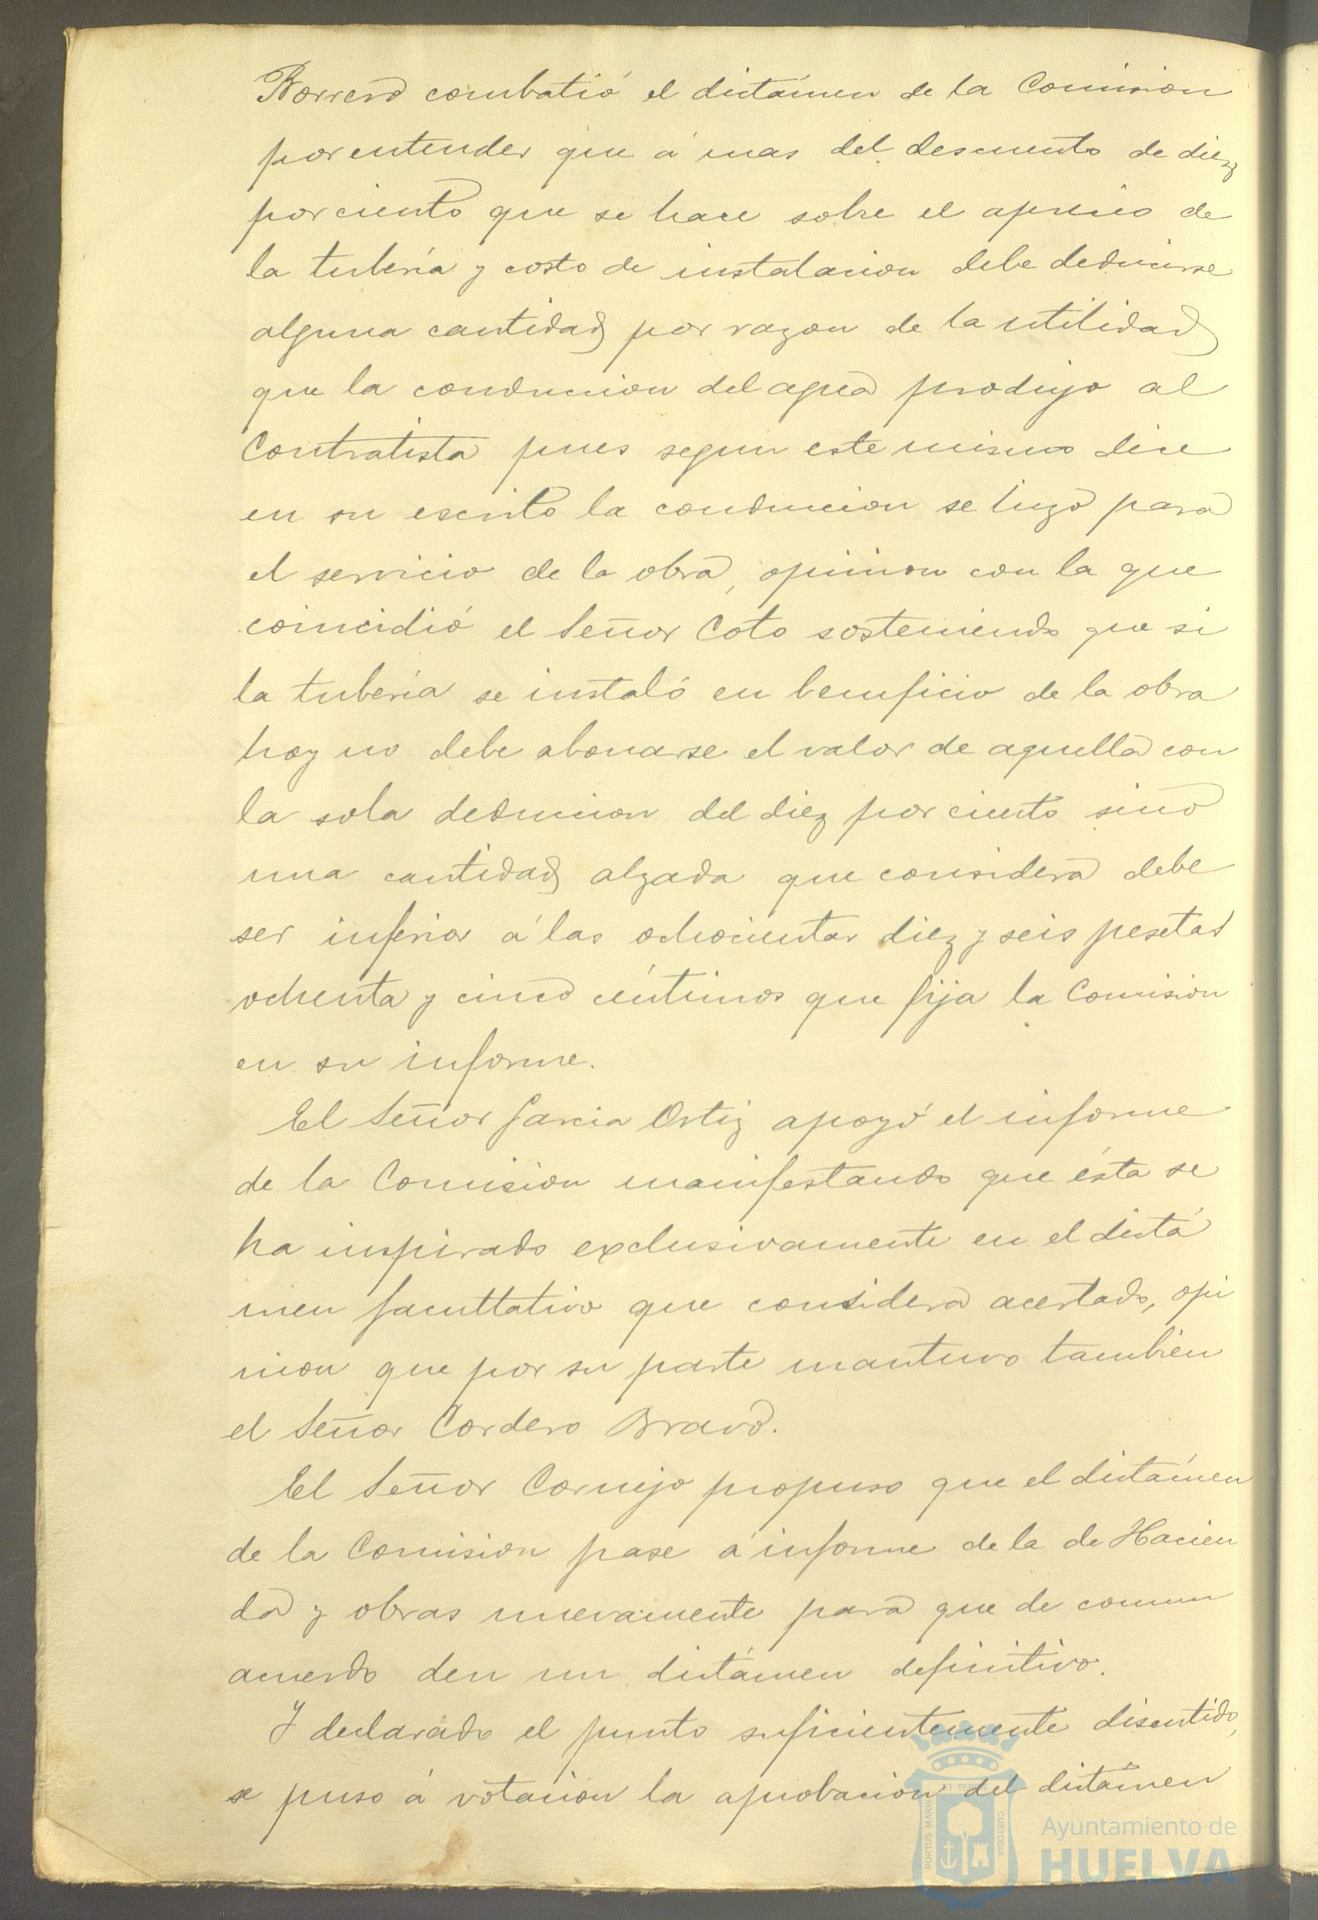 Borrero combatió el dictámen de la Comision
por entender que á mas del descuento de diez
por ciento que se hace sobre el aprecio de
la tubería y costo de instalacion debe deducirse
alguna cantidad por razon de la utilidad
que la conduccion del agua produjo al
Contratista pues segun este mismo dice
en su escrito la conduccion se hizo para
el servicio de la obra, opinion con la que
coincidió el Señor Coto sosteniendo que si
la tubería se instaló en beneficio de la obra
hoy no debe abonarse el valor de aquella con
la sola deduccion del diez por ciento sino
una cantidad alzada que considera debe
ser inferior á las ochocientas diez y seis pesetas
ochenta y cinco céntimos que fija la Comision
en su informe.
El Señor Garcia Ortiz apoyó el informe
de la Comision manifestando que ésta se
ha inspirado exclusivamente en el dictá
men facultativo que considera acertado, opi
nion que por su parte mantuvo tambien
el Señor Cordero Bravo.
El Señor Cornejo propuso que el dictámen
de la Comision pase á informe de la de Hacien
da y obras nuevamente para que de comun
acuerdo den un dictámen definitivo.
Y declarado el punto suficientemente discutido,
se puso á votacion la aprobacion del dictámen
PORTUS MARIS ET TERRAE CUSTODIA
Ayuntamiento de
HUELVA